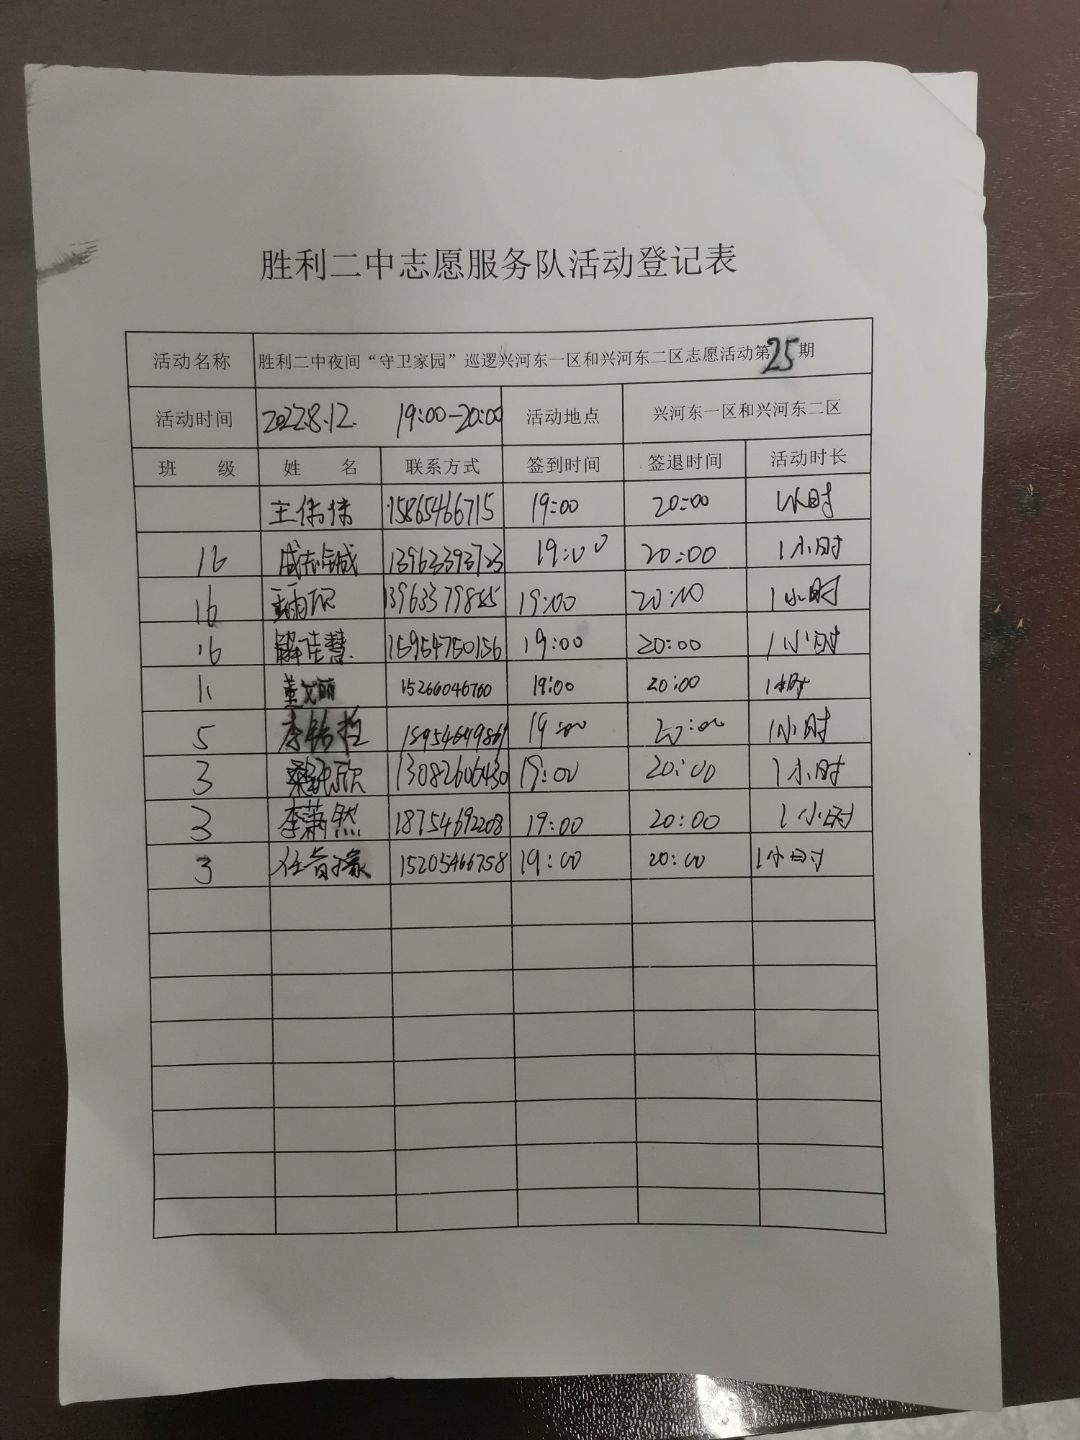 胜利二中志愿服务队活动登记表
活动名称 胜利二中夜间“守卫家园”巡逻兴河东一区和兴河东二区志愿活动第25期
活动时间 2022.8.12. 19:00-20:00 活动地点 兴河东一区和兴河东二区
班 级 姓 名 联系方式 签到时间 签退时间 活动时长
15865466715 19:00 20:00 1小时
16 13963393723 19:00 20:00 1小时
16 19:00 20:00 1小时
16 解佳慧 15954750156 19:00 20:00 1小时
11 董文丽 15266046760 19:00 20:00 1小时
5 19:00 20:00 1小时
3 13082606430 19:00 20:00 1小时
3 李萧然 18754692208 19:00 20:00 1小时
3 15205466758 19:00 20:00 1小时